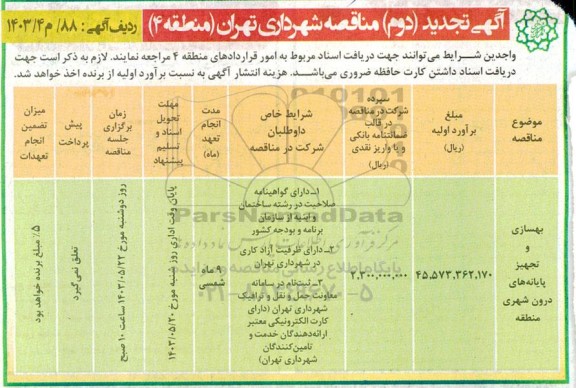 آگهی تجدید (دوم) مناقصه شهرداری تهران (منطقه ۴)
ردیف آگهی: ۸۸/م۱۴۰۳/۴
واجدین شرایط می‌توانند جهت دریافت اسناد مربوط به امور قراردادهای منطقه ۴ مراجعه نمایند. لازم به ذکر است جهت
دریافت اسناد داشتن کارت حافظه ضروری می‌باشد. هزینه انتشار آگهی به نسبت برآورد اولیه از برنده اخذ خواهد شد.
موضوع
مناقصه
مبلغ
برآورد اولیه
(ریال)
سپرده
شرکت در مناقصه
در قالب
ضمانتنامه بانکی
و یا واریز نقدی
(ریال)
شرایط خاص
داوطلبان
شرکت در مناقصه
مدت
انجام
تعهد
(ماه)
مهلت
تحویل
اسناد و
تسلیم
پیشنهاد
زمان
برگزاری
جلسه
مناقصه
پیش
پرداخت
میزان
تضمین
انجام
تعهدات
بهسازی
و
تجهیز
پایانه‌های
درون شهری
منطقه
۴۵,۵۷۳,۳۶۲,۱۷۰
۲,۳۰۰,۰۰۰,۰۰۰
۱_دارای گواهینامه
صلاحیت در رشته ساختمان
و ابنیه از سازمان
برنامه و بودجه کشور
۲_دارای ظرفیت آزاد کاری
در شهرداری تهران
۳_ثبت‌نام در سامانه
معاونت حمل و نقل و ترافیک
شهرداری تهران (دارای
کارت الکترونیکی معتبر
ارائه‌دهندگان خدمت و
تامین‌کنندگان
شهرداری تهران)
۹ ماه
شمسی
پایان وقت اداری روز شنبه مورخ ۱۴۰۳/۰۵/۲۰
روز دوشنبه مورخ ۱۴۰۳/۰۵/۲۲ ساعت ۱۰ صبح
تعلق نمی‌گیرد
۵٪ مبلغ برنده خواهد بود
ParsNamadData